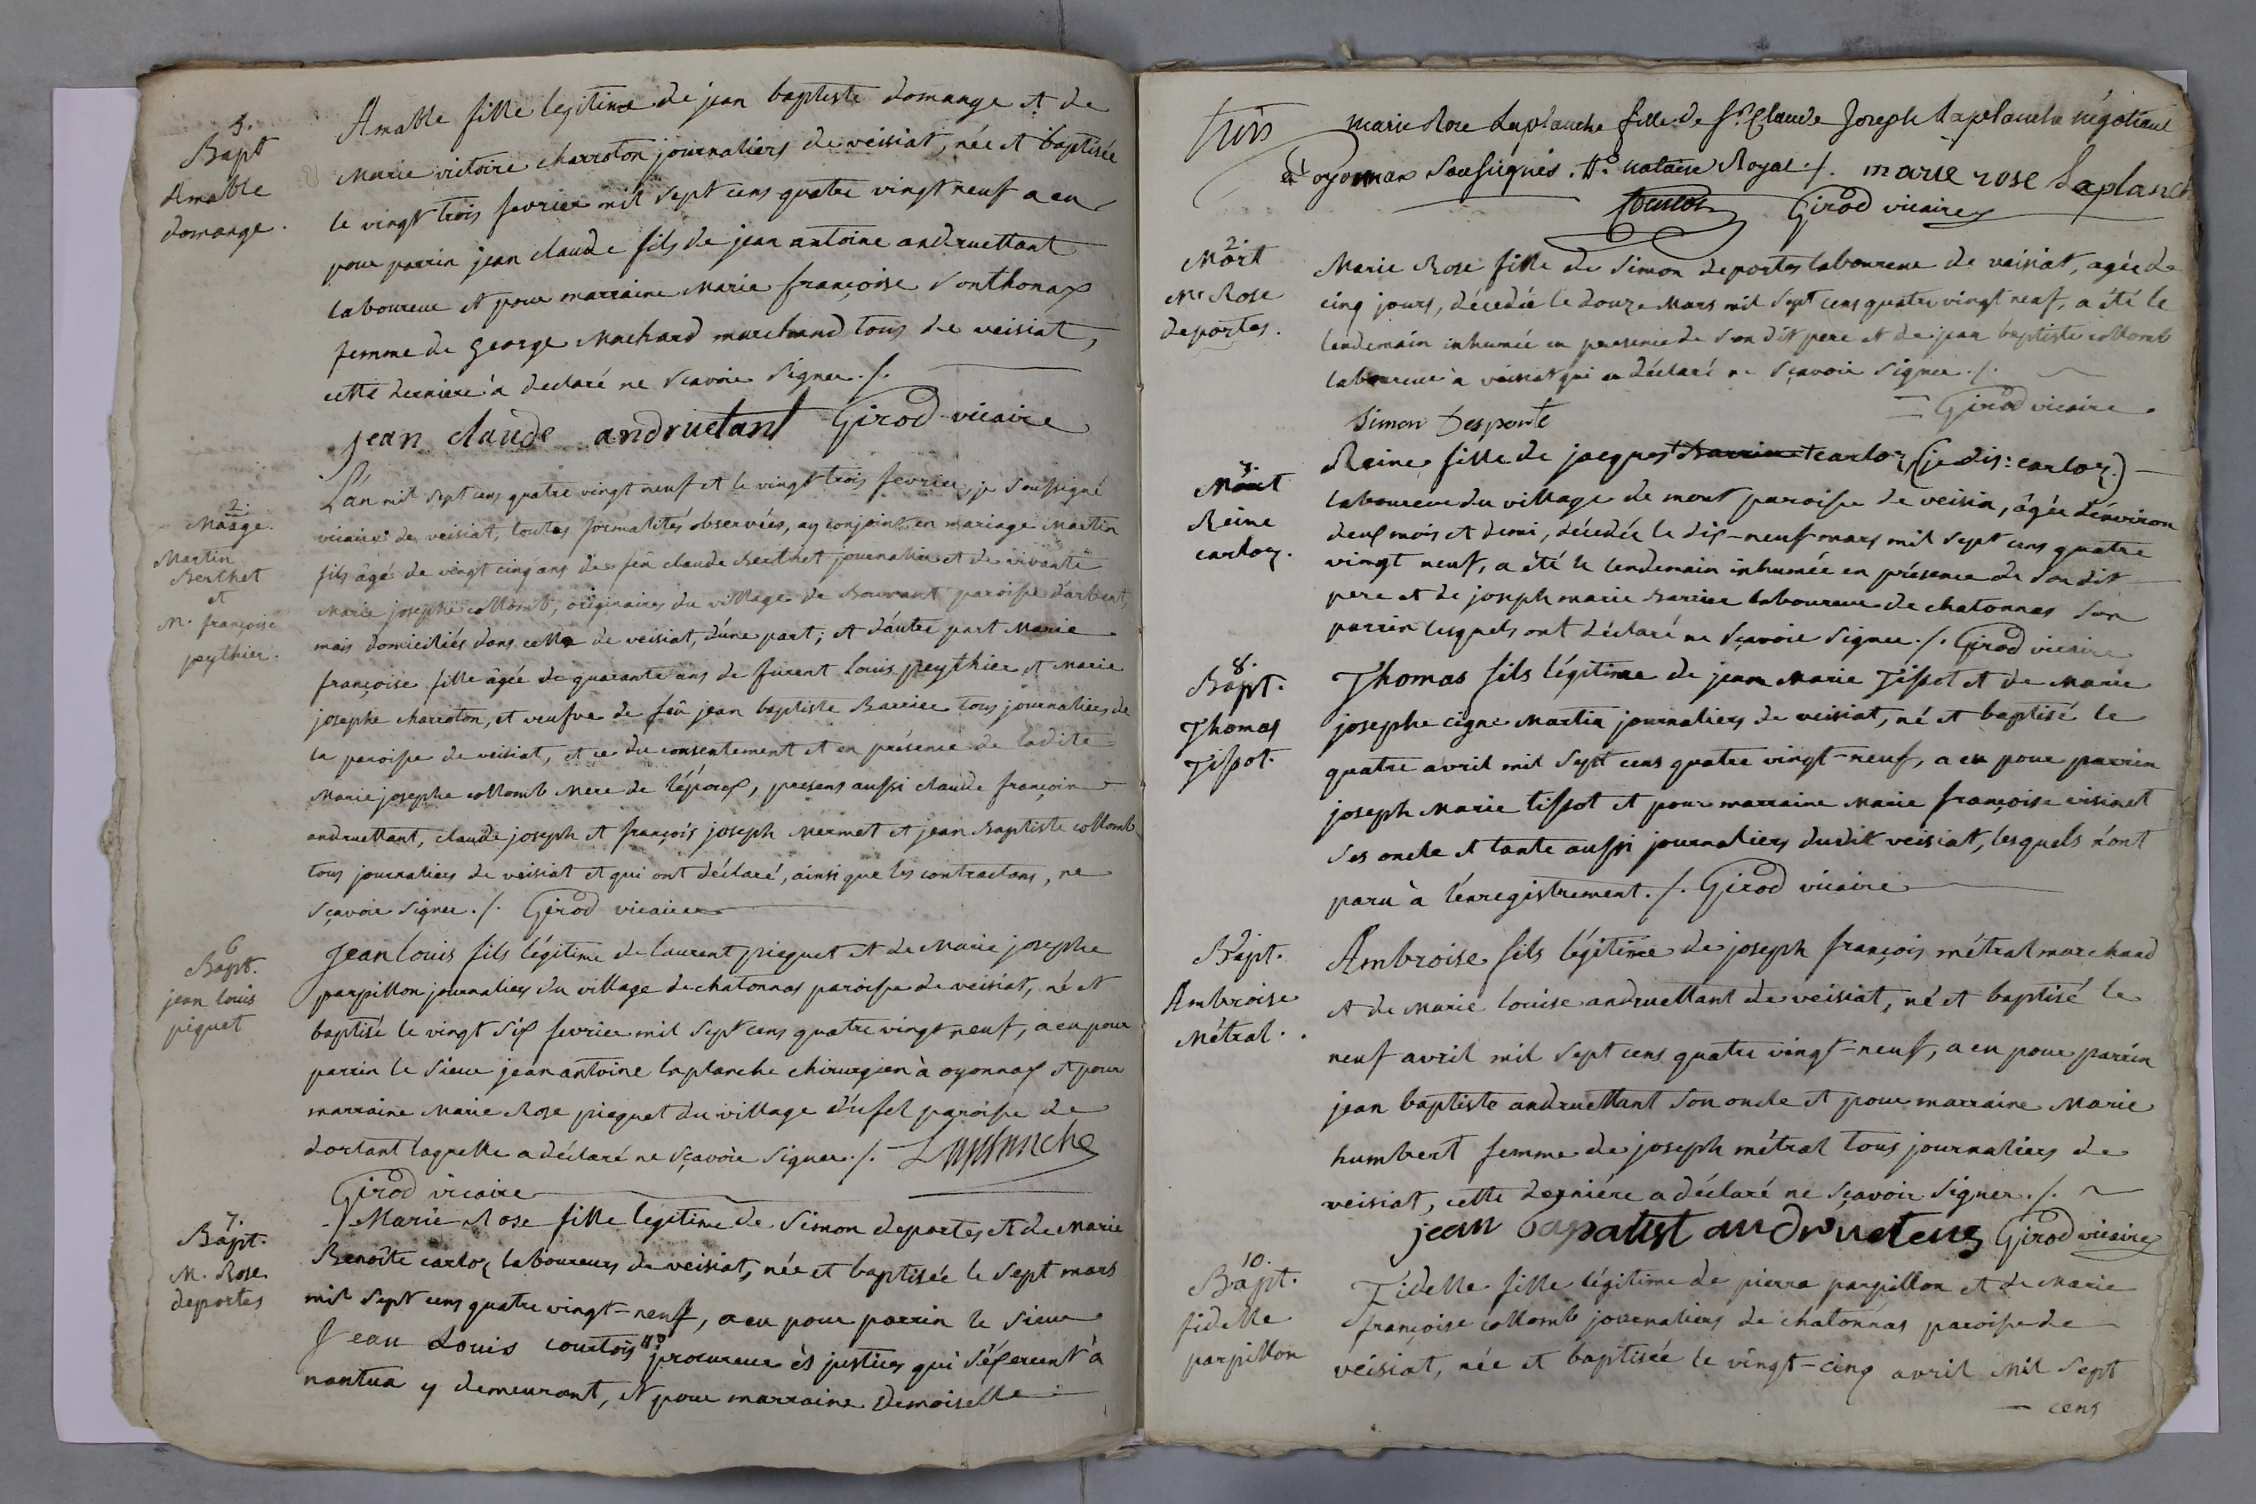 5.
Bapt
Amable
domange.
Amable fille legitime de jean baptiste domange et de
Marie victoire charroton journaliers de veisiat, née et baptisée
le vingt trois fevrier mil sept cens quatre vingt neuf a eu
pour parrin jean claude fils de jean antoine andruettant
laboureur et pour marraine Marie françoise Sonthonax
femme de george Machard marchand tous de veisiat,
cette derniere a declaré ne sçavoir signer ./.
jean claude andruetant Girod vicaire
2.
Mariage
Martin
Berthet
et
M. françoise
peythier.
L'an mil sept cens quatre vingt neuf et le vingt trois fevrier, je soussigné
vicaire de veisiat, toutes formalités observées, ay conjoint en mariage Martin
fils âgé de vingt cinq ans de feu claude Berthet journalier et de vivante
Marie josephe collomb, originaires du village de Bouvant paroisse d'arbent,
mais domiciliés dans celle de veisiat, d'une part; et d'autre part Marie
françoise fille âgée de quarante ans de furent Louis peythier et Marie
josephe charroton, et veufve de feû jean baptiste Barrier tous journaliers de
la paroisse de veisiat, et ce du consentement et en présence de ladite
Marie josephe collomb Mere de l'époux, presens aussi claude françois
andruettant, claude joseph et françois joseph Mermet et jean Baptiste collomb
tous journaliers de veisiat et qui ont déclaré, ainsi que les contractans, ne
sçavoir signer ./. Girod vicaire
6
Bapt.
jean louis
piquet
Jean louis fils légitime de laurent piequet et de Marie josephe
parpillon journaliers du village de chatonnas paroisse de veisiat, né et
baptisé le vingt six fevrier mil sept cens quatre vingt neuf, a eu pour
parrin le Sieur jean antoine laplanche chirurgien à oyonnax et pour
marraine Marie Rose piequet du village d'uffel paroisse de
dortant laquelle a déclaré ne sçavoir signer ./. Laplanche
Girod vicaire
7.
Bapt.
M. Rose
deportes
Marie Rose fille legitime de Simon deportes et de Marie
Benoîte carloz laboureurs de veisiat, née et baptisée le sept mars
mil sept cens quatre vingt-neuf, a eu pour parrin le sieur
Jean Louis courtois procureur ès justices qui s'éxercent à
nantua y demeurant, et pour marraine Demoiselle
trois
marie Rose Laplanche fille de Sr. Claude Joseph Laplanche négotiant
à oyonnax Soussignés. Nre. notaire Royal ./. marie rose Laplanch
Girod vicaire
2.
Mort
Me Rose
deportes.
Marie Rose fille de Simon deportes laboureur de veisiat, agée de
cinq jours, décedée le douze Mars mil sept cens quatre vingt neuf, a été le
lendemain inhumée en presence de son dit pere et de jean baptiste collomb
laboureur à veisiat qui a déclaré ne sçavoir signer ./.
Girod vicaire
Simon Desporte
3.
Mort
Reine
carloz.
Reine fille de jacques Barrier carloz (je dis: carloz)
laboureur du village de mont paroisse de veisia, âgée d'environ
deux mois et demi, décedée le dix-neuf mars mil sept cens quatre
vingt neuf, a été le lendemain inhumée en présence de son dit
pere et de joseph marie Barrier laboureur de chatonnas son
parrin lesquels ont déclaré ne sçavoir signer ./. Girod vicaire
8.
Bapt.
Thomas
Tissot.
Thomas fils légitime de jean Marie Tissot et de Marie
josephe cigne Martin journaliers de veisiat, né et baptisé le
quatre avril mil sept cens quatre vingt-neuf, a eu pour parrin
joseph Marie tissot et pour marraine Marie françoise visinet
ses oncle et tante aussi journaliers dudit veisiat, lesquels n'ont
paru à l'enregistrement ./. Girod vicaire
9
Bapt.
Ambroise
Métral.
Ambroise fils légitime de joseph françois métral marchand
et de Marie louise andruettant de veisiat, né et baptisé le
neuf avril mil sept cens quatre vingt-neuf, a eu pour parrin
jean baptiste andruettant son oncle et pour marraine Marie
humbert femme de joseph métral tous journaliers de
veisiat, cette derniére a déclaré ne sçavoir signer ./.
jean bapatist andructens Girod vicaire
10.
Bapt.
fidelle
parpillon
Fidelle fille légitime de pierre parpillon et de Marie
françoise collomb journaliers de chatonnas paroisse de
veisiat, née et baptisée le vingt-cinq avril Mil Sept
cens